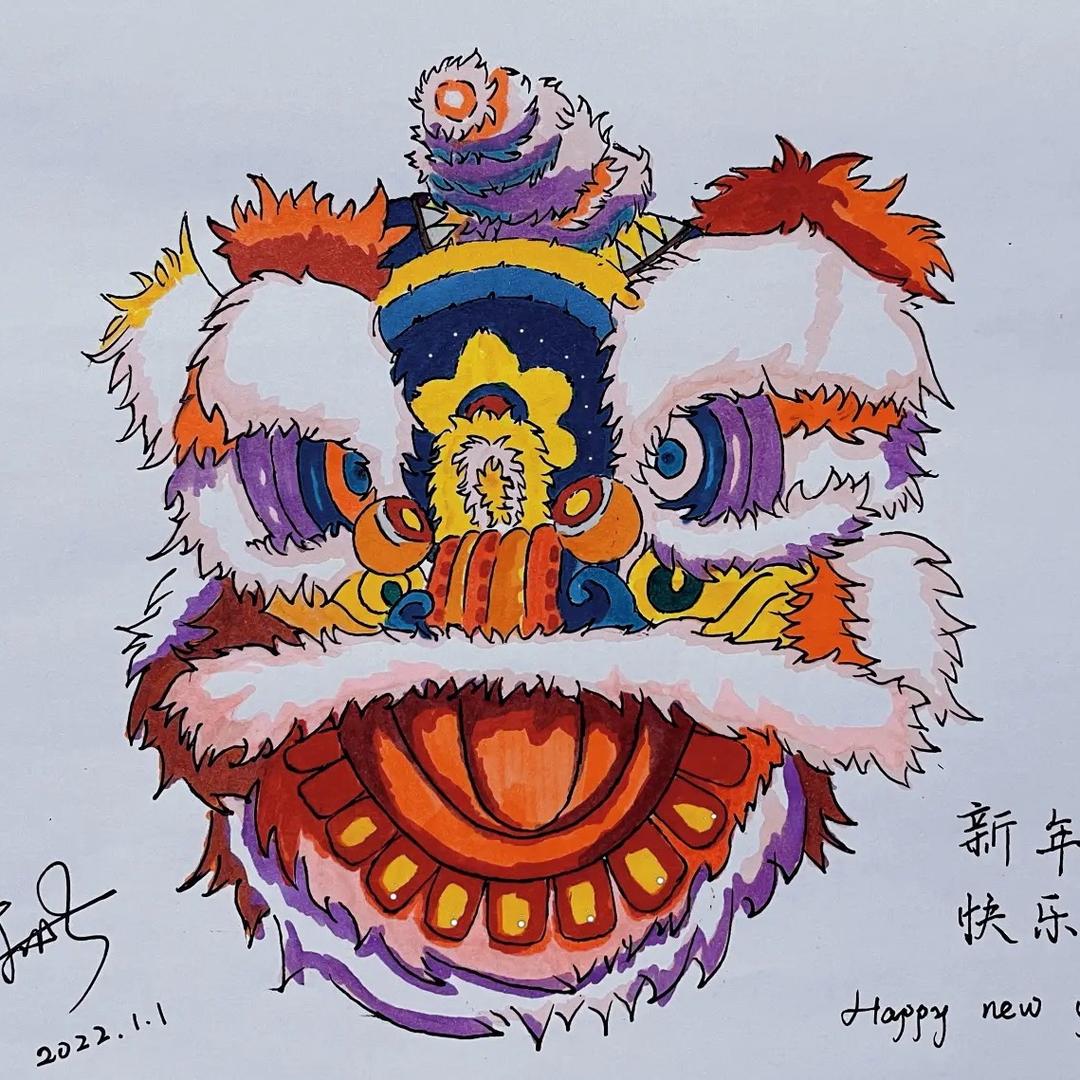 新年
快乐
Happy new
2022.1.1